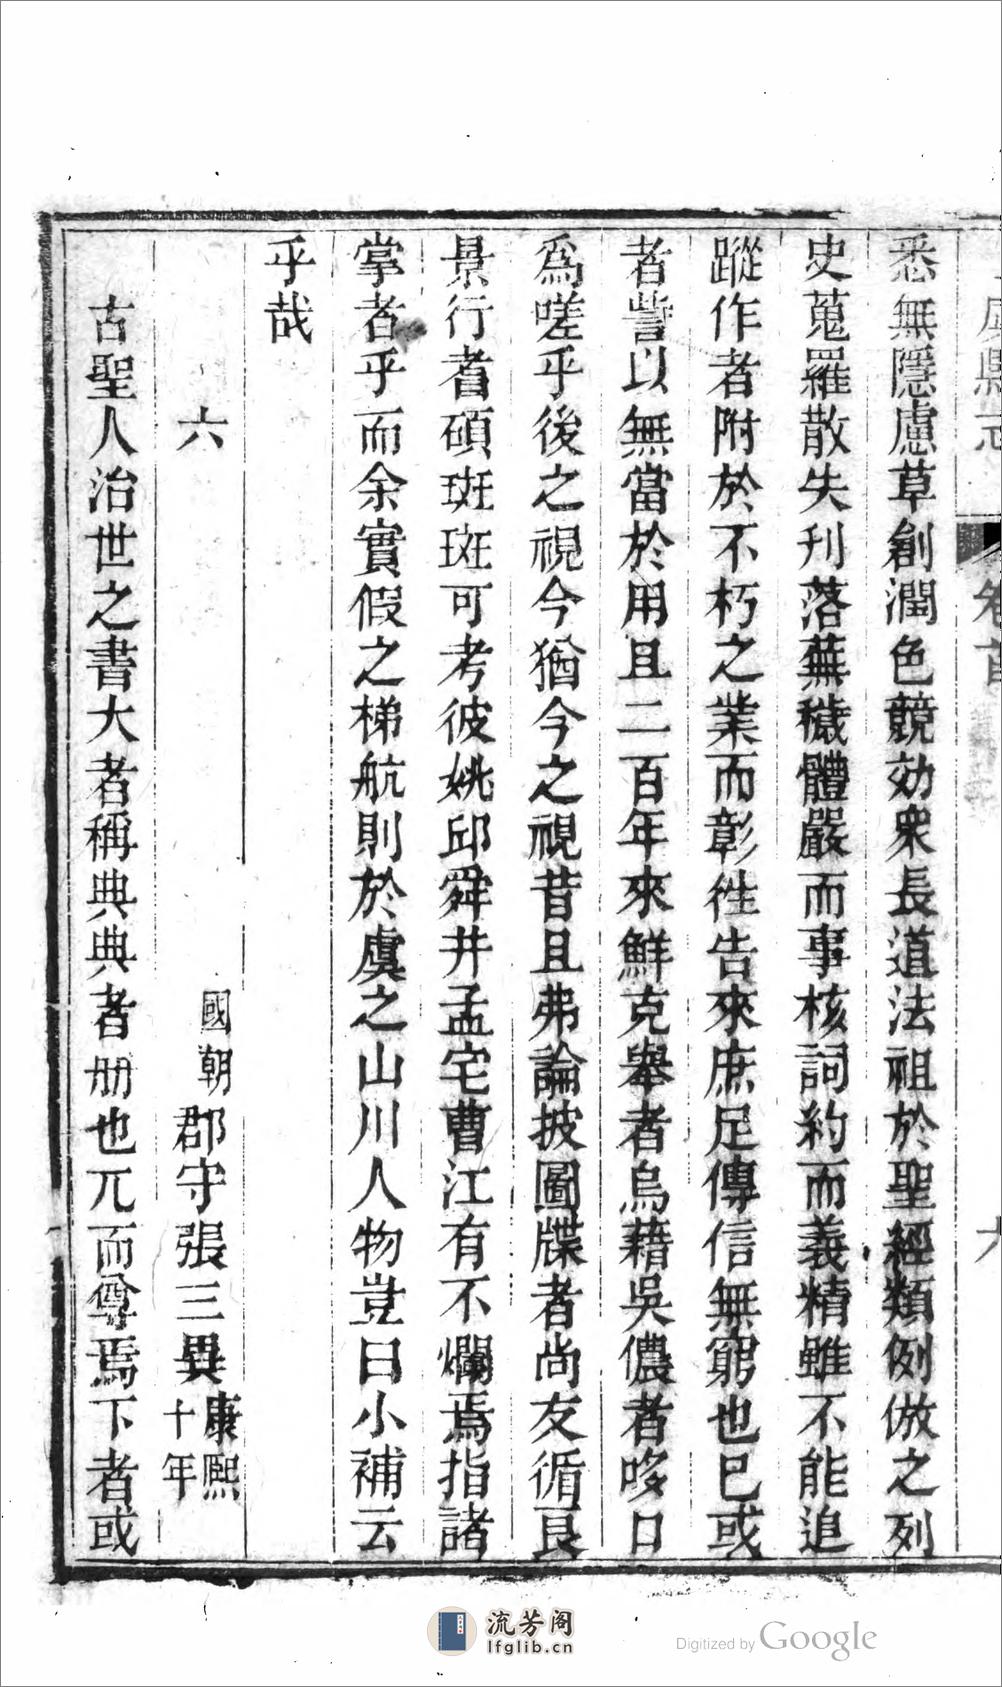 卷首
悉無隱慮草創潤色競効衆長道法祖於聖經類例倣之列
史蒐羅散失刋落蕪穢體嚴而事核詞約而義精雖不能追
蹤作者附於不朽之業而彰徃告來庶足傳信無窮也已或
者訾以無當於用且二百年來鮮克舉者烏藉吳儂者哆口
爲嗟乎後之視今猶今之視昔且弗論披圖牒者尚友循良
景行耆碩斑斑可考彼姚邱舜井孟宅曹江有不爛焉指諸
掌者乎而余實假之梯航則於虞之山川人物豈曰小補云
乎哉
六
國朝郡守張三異康熙十年
古聖人治世之書大者稱典典者册也丌而尊焉下者或
流芳阁
lfglib.cn
Digitized by Google